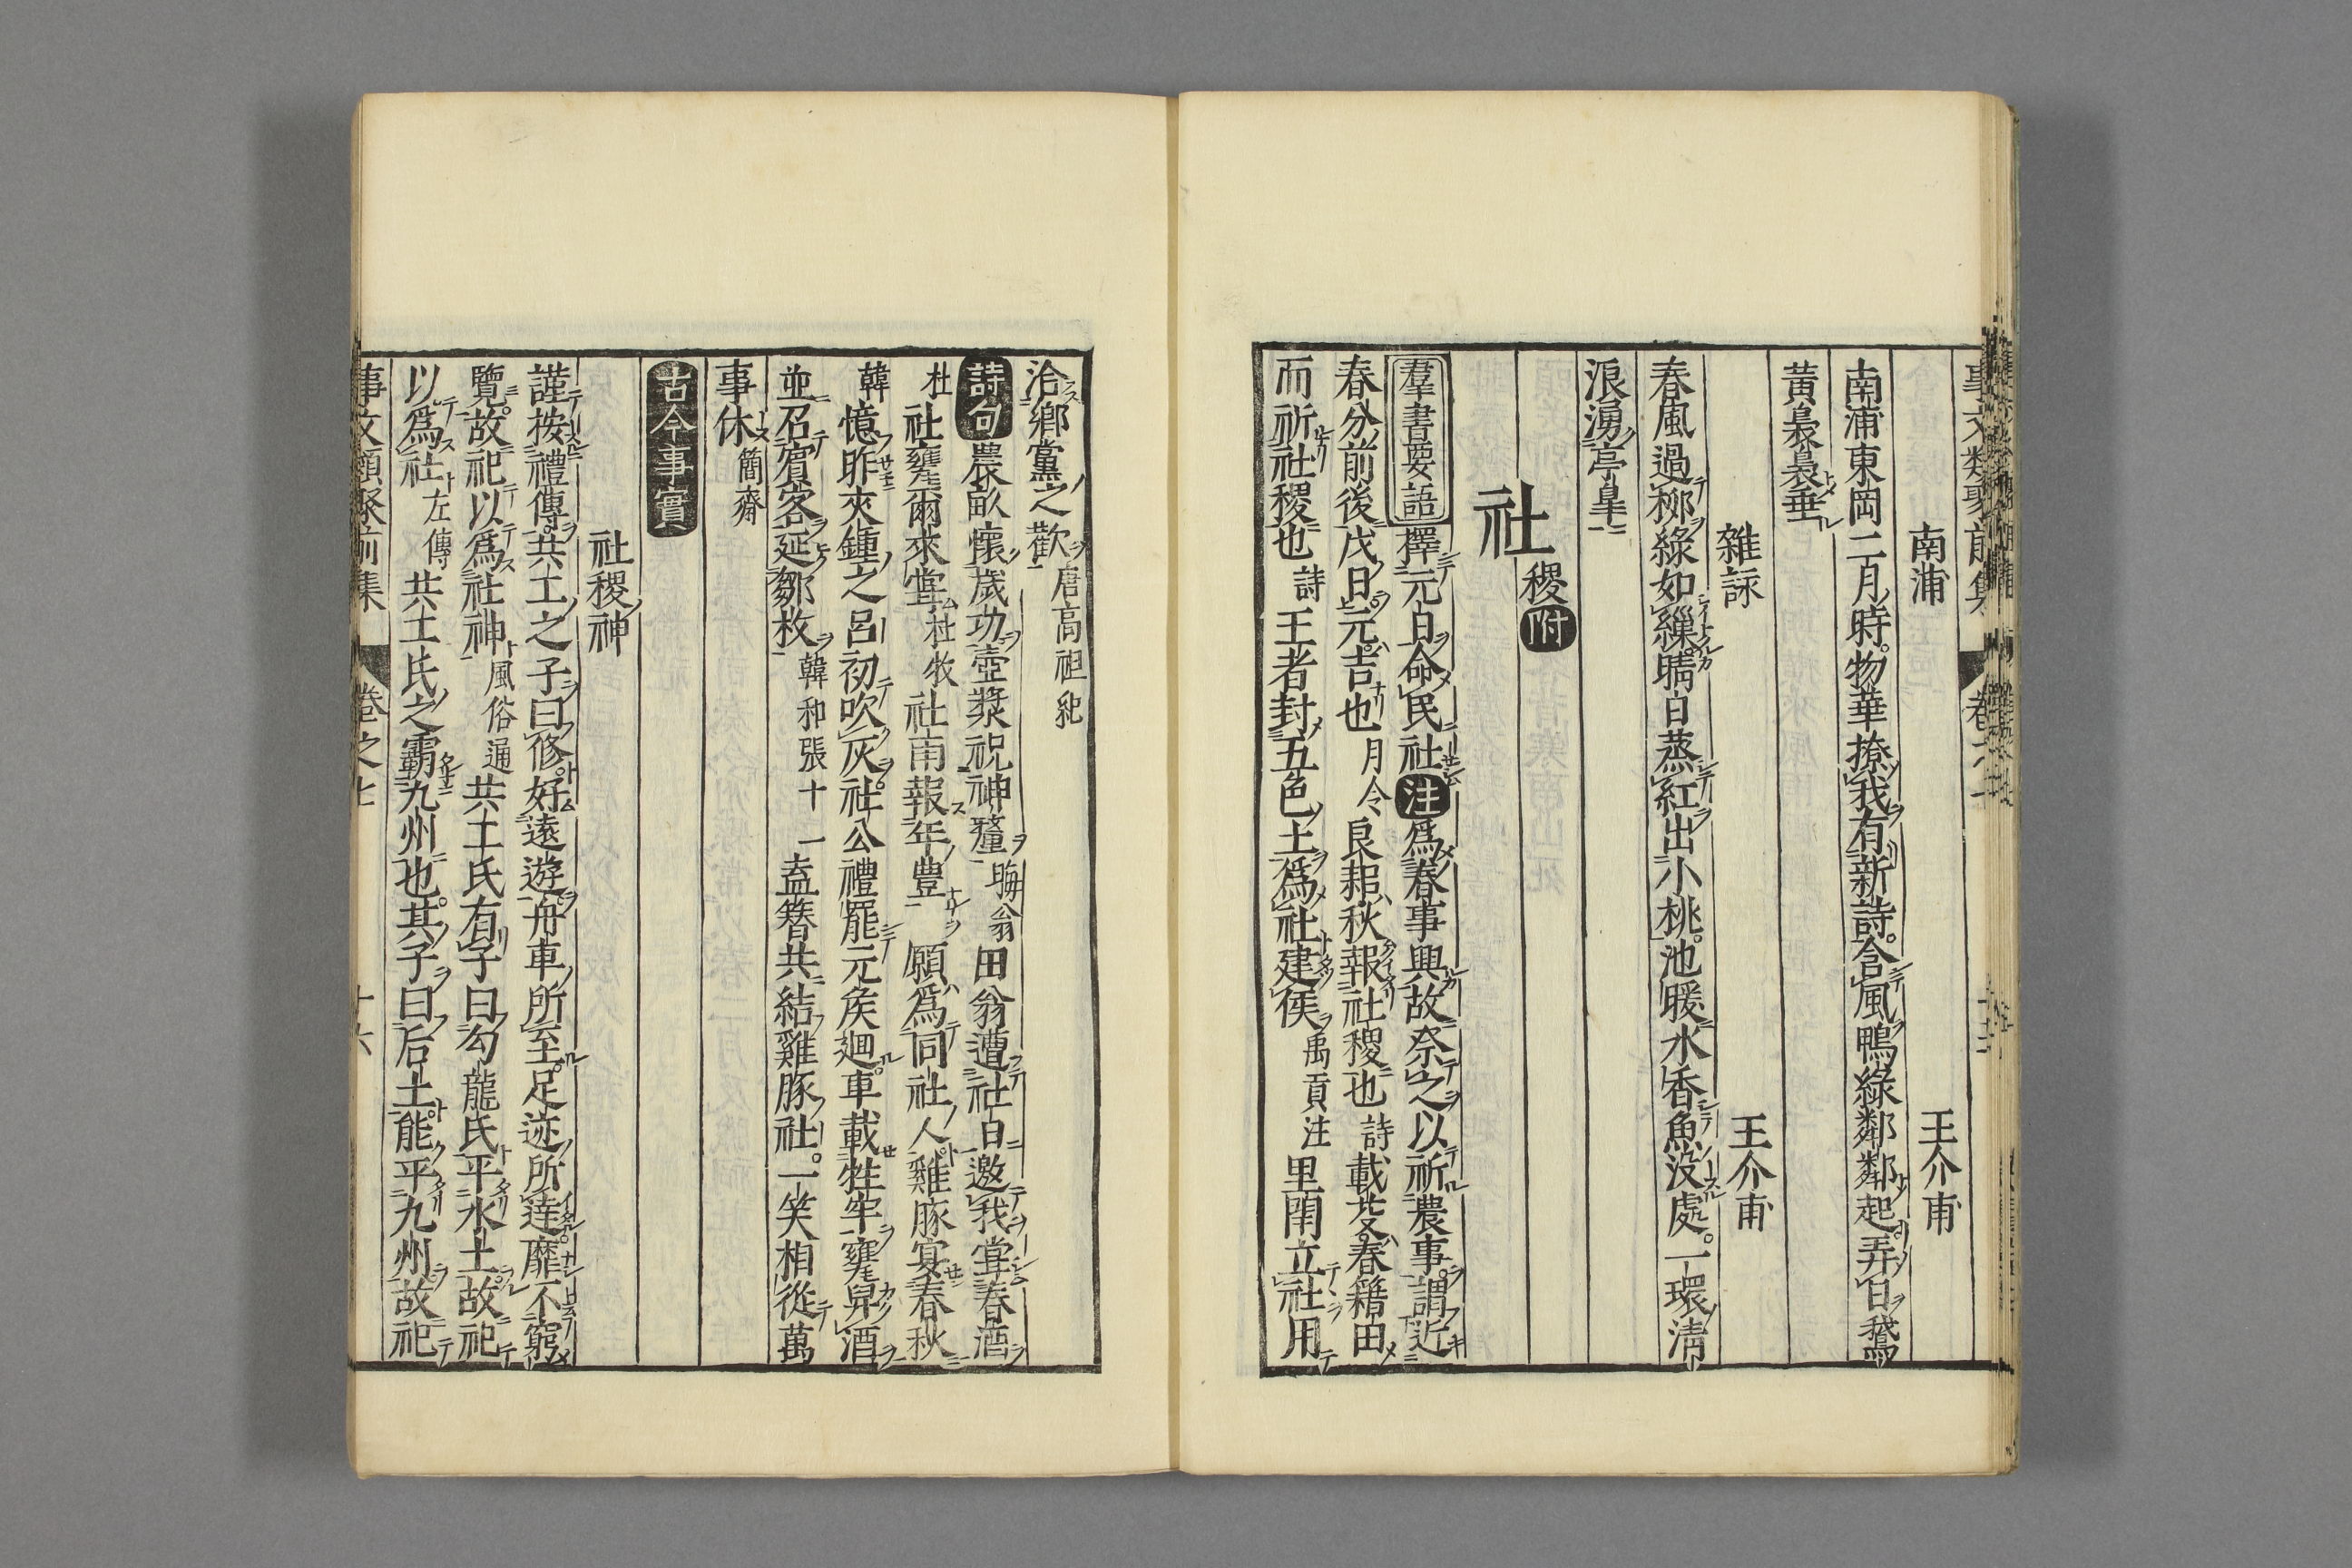 事文類聚前集 卷六
南浦 王介甫
南浦東岡二月時。物華撩我有新詩。含風鴨綠鄰鄰起。弄日鵞
黃裊裊垂
雜詠 王介甫
春風過栁綠如繅。晴日蒸紅出小桃。池暖水香魚沒處。一環淸
浪湧亭皐
社 稷附
羣書要語 擇元日命民社 注 爲春事興故祭之以祈農事。謂近
春分前後戊日元。吉也 月令 良耜秋報社稷也 詩 載芟春籍田
而祈社稷也 詩 王者封五色土爲社建侯 禹貢注 里閈立社用
洽鄉黨之歡 唐高祖紀
詩句 農畝懷歲功壺漿祝神釐 晦翁 田翁遭社日邀我甞春酒
杜 社甕爾來甞 杜牧 社南報年豐 願爲同社人雞豚宴春秋
韓 憶昨夾鍾之呂初吹灰。社公禮罷元矦廻。車載牲牢甕舁酒
並召賓客延鄒枚 韓和張十一 盍簪共結雞豚社。一笑相從萬
事休 簡齋
古今事實
社稷神
謹按禮傳。共工之子曰修。好遠遊舟車所至。足迹所達。靡不窮
覽。故祀以爲社神 風俗通 共工氏有子曰勾龍氏平水土。故祀
以爲社 左傳 共工氏之霸九州也。其子曰后土。能平九州。故祀
事文類聚前集 卷之七 十六